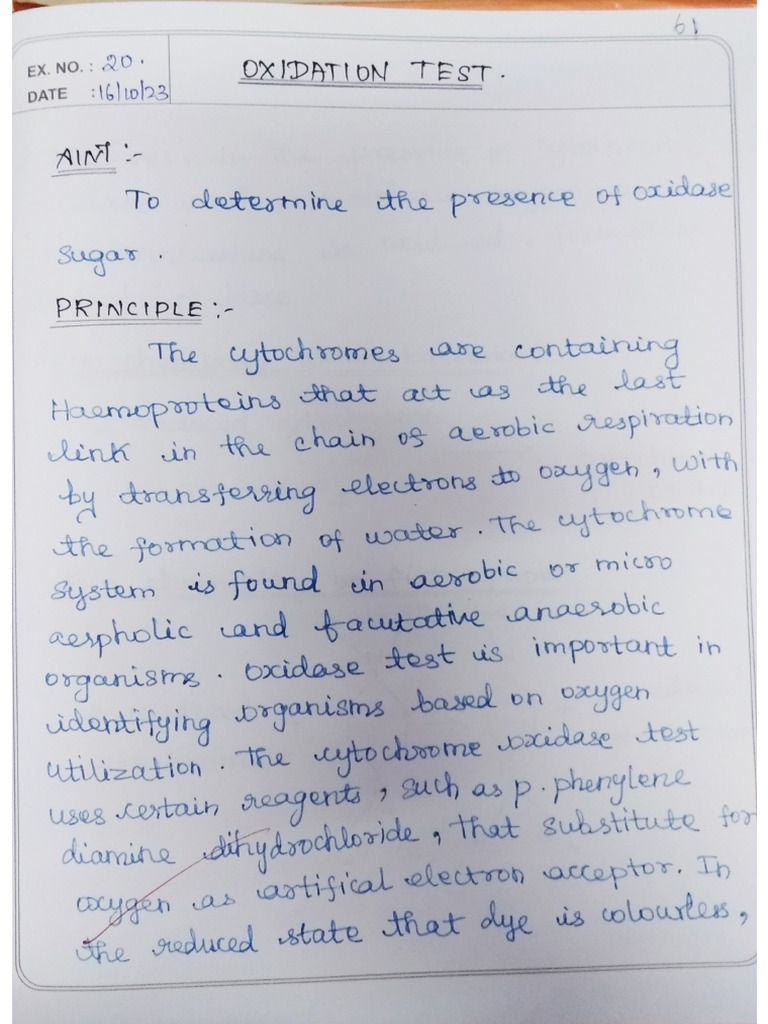 61
EX. NO. : 20.
OXIDATION TEST.
DATE : 16/10/23
AIM :-
To determine the presence of oxidase
sugar.
PRINCIPLE :-
The cytochromes are containing
Haemoproteins that act as the last
link in the chain of aerobic respiration
by transferring electrons to oxygen, with
the formation of water. The cytochrome
system is found in aerobic or micro
aespholic and facutative anaerobic
organisms. Oxidase test is important in
identifying organisms based on oxygen
utilization. The cytochrome oxidase test
uses certain reagents, such as p. phenylene
diamine dihydrochloride, that substitute for
oxygen as artifical electron acceptor. In
the reduced state that dye is colourless,